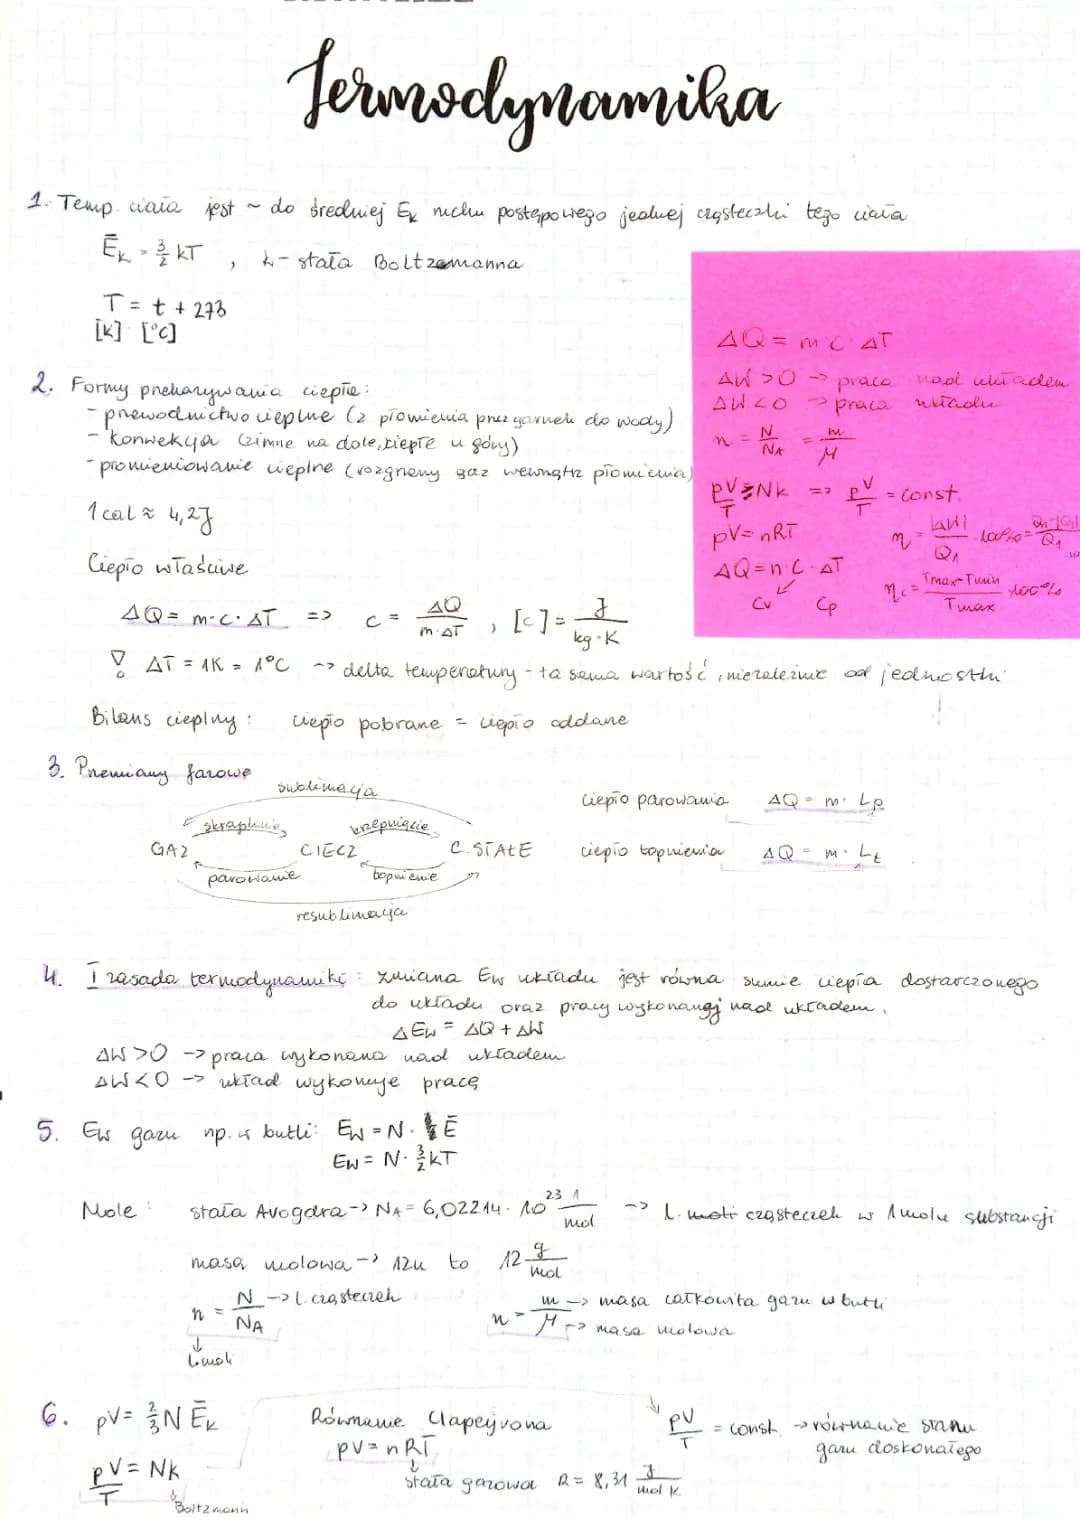 Termodynamika
1. Temp. ciała jest ~ do średniej Eₖ ruchu postępowego jednej cząsteczki tego ciała
Ēₖ = 3/2 kT , k - stała Boltzmanna
T = t + 273
[K] [°C]
2. Formy przekazywania ciepła:
- przewodnictwo cieplne (z płomienia przez garnek do wody)
- konwekcja (zimne na dole, ciepłe u góry)
- promieniowanie cieplne (rozgrzany gaz wewnątrz płomienia)
1 cal ≈ 4,2J
Ciepło właściwe
ΔQ = m·c·ΔT => c = ΔQ / m·ΔT , [c] = J / kg·K
! ΔT = 1K = 1°C -> delta temperatury - ta sama wartość, niezależnie od jednostki
Bilans cieplny: ciepło pobrane = ciepło oddane
ΔQ = m·c·ΔT
ΔW > 0 -> praca nad układem
ΔW < 0 -> praca układu
n = N/NA = m/M
pV/T = Nk => pV/T = const.
pV = nRT
η = |ΔW|/Q₁ · 100% =
ΔQ = n·C·ΔT
Cv Cp
ηc = Tmax-Tmin / Tmax · 100%
3. Przemiany fazowe
sublimacja
skraplanie krzepnięcie
GAZ CIECZ C. STAŁE
parowanie topnienie
resublimacja
ciepło parowania ΔQ = m · Lp
ciepło topnienia ΔQ = m · Lt
4. I zasada termodynamiki: zmiana Ew układu jest równa sumie ciepła dostarczonego
do układu oraz pracy wykonanej nad układem.
ΔEw = ΔQ + ΔW
ΔW > 0 -> praca wykonana nad układem
ΔW < 0 -> układ wykonuje pracę
5. Ew gazu np. w butli: Ew = N · Ē
Ew = N · 3/2 kT
Mole: stała Avogadra -> NA = 6,02214 · 10²³ 1/mol -> l. cząsteczek w 1 molu substancji
masa molowa -> 12u to 12 g/mol
n = N/NA -> l. cząsteczek
l. moli
n = m/M -> masa całkowita gazu w butli
-> masa molowa
6. pV = 2/3 N Ēₖ
pV/T = Nk
Boltzmann
Równanie Clapeyrona
pV = nRT
stała gazowa R = 8,31 J / mol K
pV/T = const. -> równanie stanu
gazu doskonałego